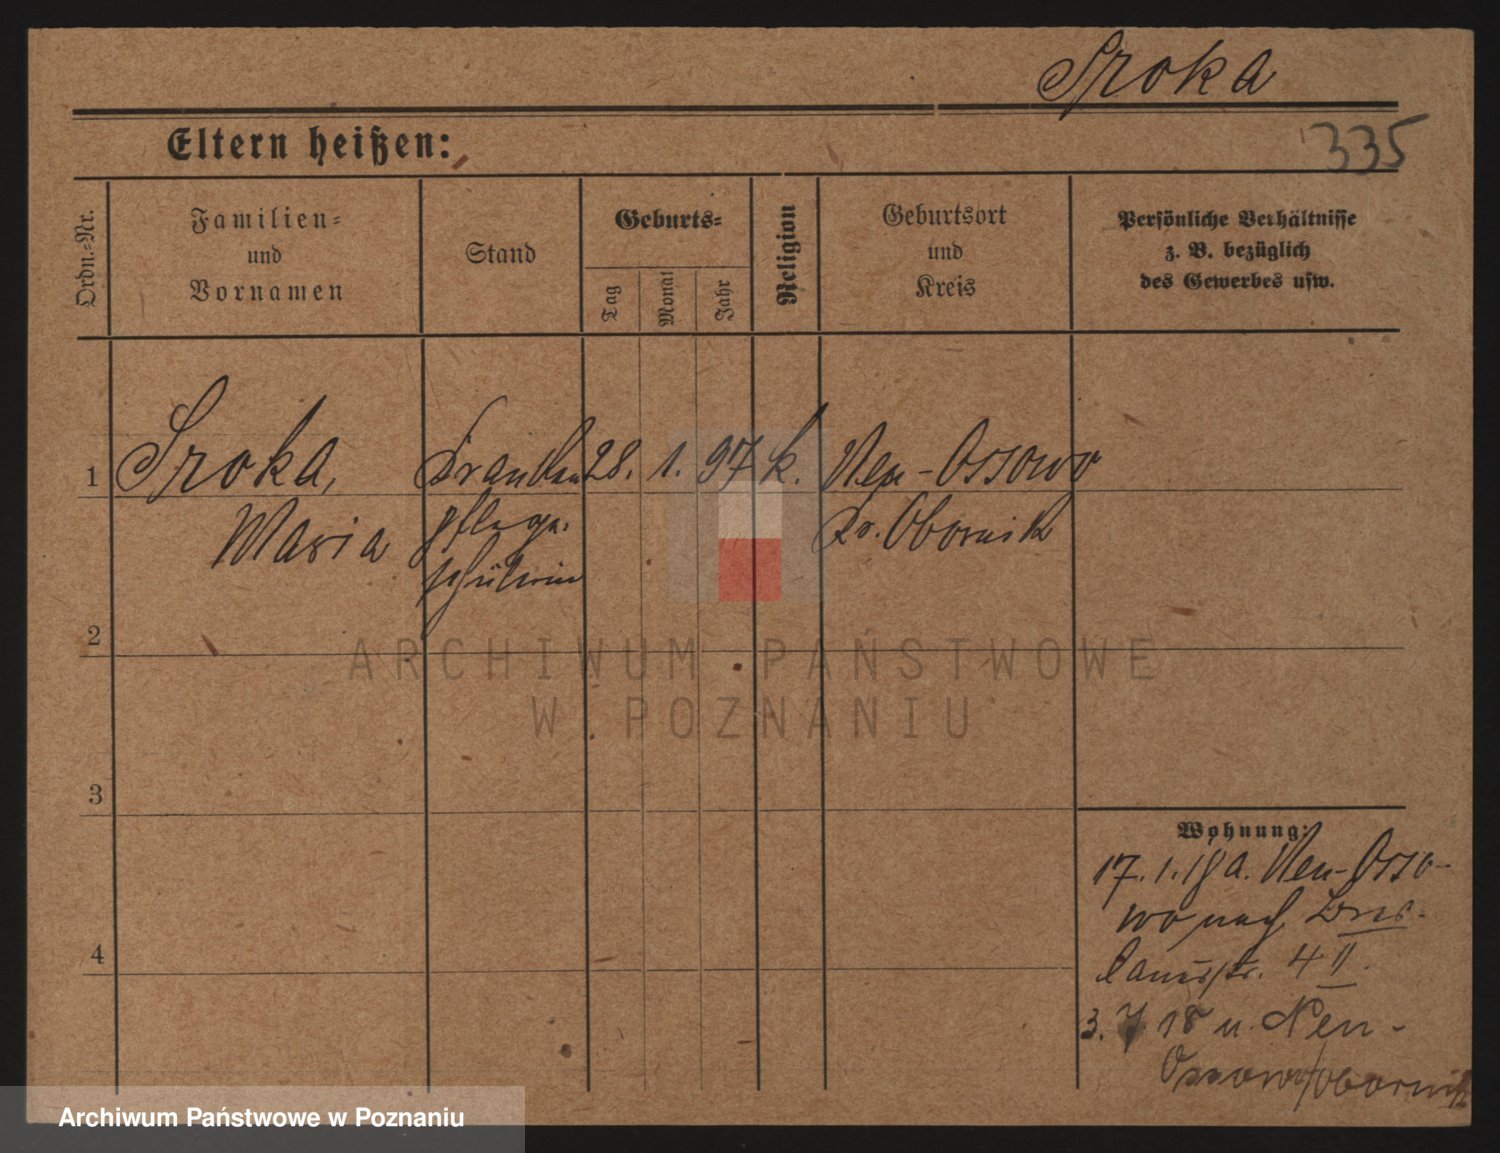 Sroka
Eltern heißen:
335
Ordn.-Nr.
Familien-
und
Vornamen
Stand
Geburts-
Tag
Monat
Jahr
Religion
Geburtsort
und
Kreis
Persönliche Verhältnisse
z. B. bezüglich
des Gewerbes usw.
1 Sroka, Kranken 28. 1. 97 k. Neu-Ossowo
Maria pflege- Kr. Obornik
schülerin
2
ARCHIWUM PAŃSTWOWE
W POZNANIU
3
Wohnung:
17. 1. 18 a. Neu-Osso-
wo nach Bres-
lauerstr. 4 II.
4
3. 7. 18 n. Neu-
Ossowo/Obornik
Archiwum Państwowe w Poznaniu